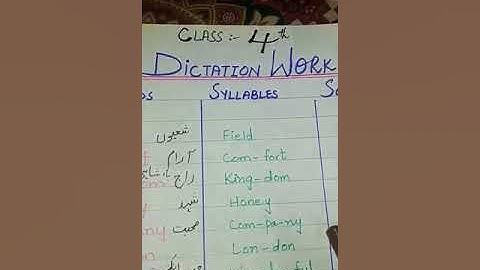 CLASS:- 4th
DICTATION WORK
DS SYLLABLES
شعبوں Field
آرام Com-fort
King-dom
شہد Honey
صحبت Com-pa-ny
Lon-don